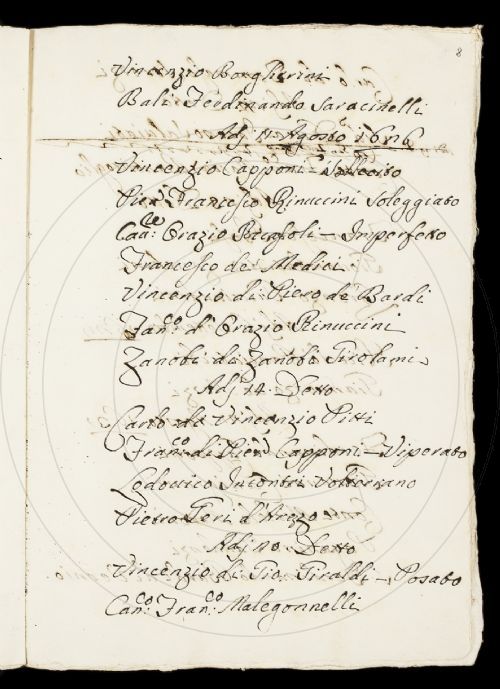 8
Vincenzio Borgherini
Bali Ferdinando Saracinelli
Adj 11 Agosto 1626
Vincenzio Capponi – Sollecito
Pier Francesco Rinuccini Soleggiato
Cau:re Orazio Ricasoli – Imperfetto
Francesco de Medici
Vincenzio di Piero de Bardi
Fan:co d'Orazio Rinuccini
Zanobi di Zanobi Girolami
Adj 14 Detto
Carlo di Vincenzio Pitti
Fran:co di Piero Capponi – Viperato
Lodovico Incontri Volterrano
Pietro Geri d'Arezo
Adj 20 Detto
Vincenzio di Gio: Giraldi – Posato
Can:co Fran:co Malegonnelli